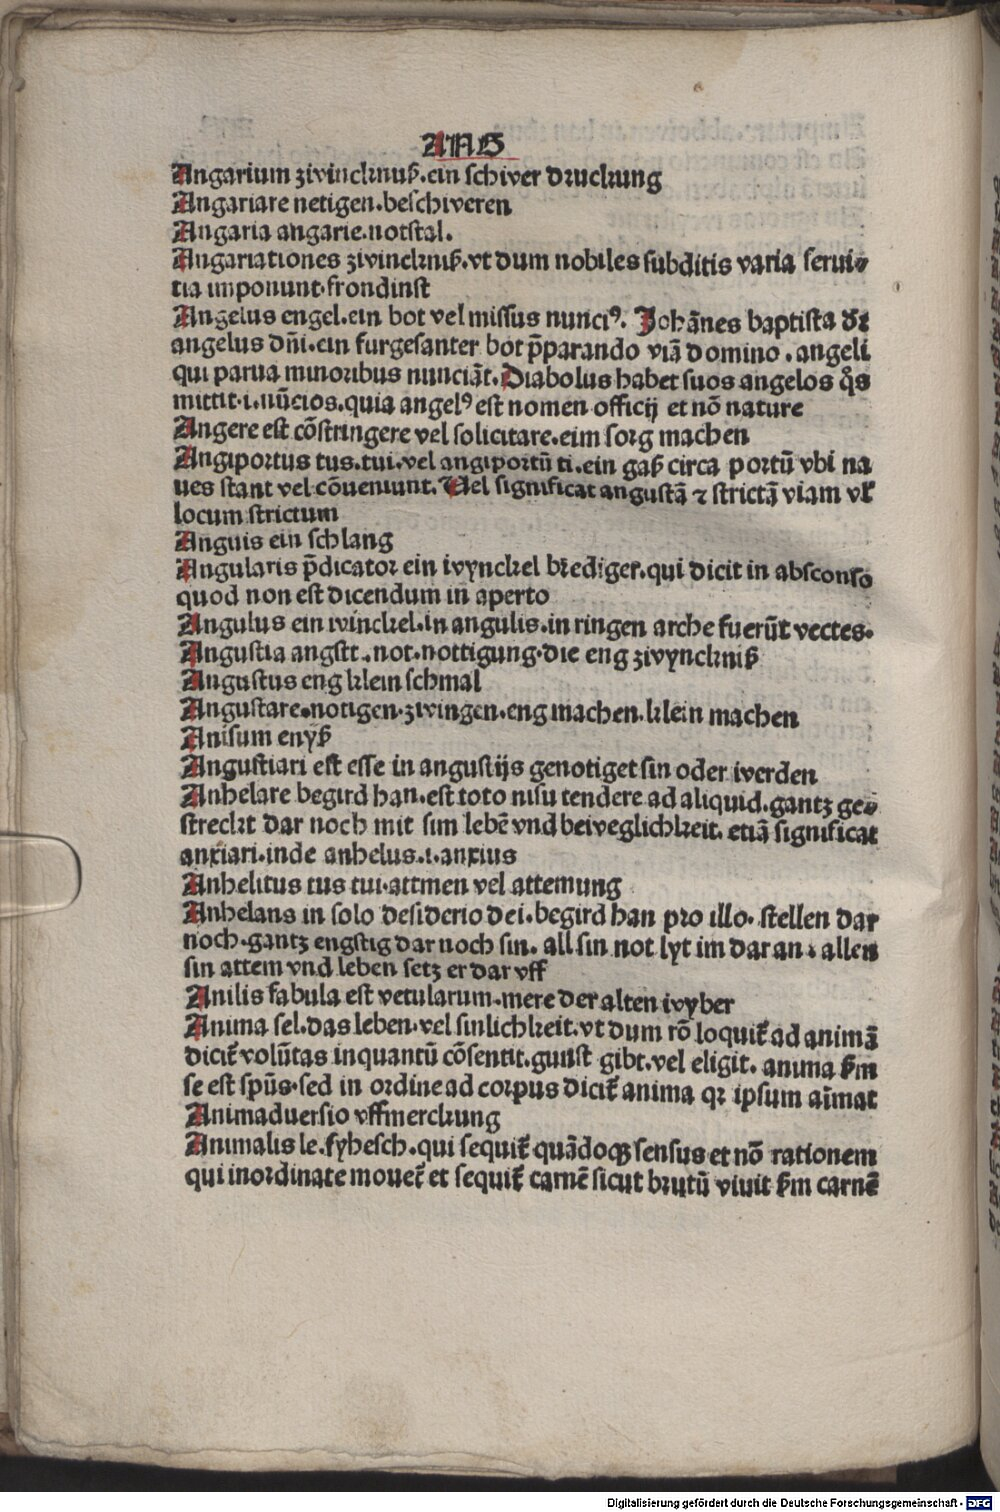 ANG
Angarium zwincknuß.ein schwer druckung
Angariare netigen.beschweren
Angaria angarie.notstal.
Angariationes zwinckniß.vt dum nobiles subditis varia serui⸗
tia imponunt.frondinst
Angelus engel.ein bot vel missus nunciꝰ. Johānes baptista dꝛ
angelus dñi.ein furgesanter bot p̄parando viā domino.angeli
qui parua minoribus nunciāt.Diabolus habet suos angelos q̊s
mittit.i.nūcios.quia angelꝰ est nomen officij et nō nature
Angere est cōstringere vel solicitare.eim sorg machen
Angiportus tus.tui.vel angiportū ti.ein gaß circa portū vbi na
ues stant vel cōueniunt.Uel significat angustā ⁊ strictā viam vł
locum strictum
Anguis ein schlang
Angularis p̄dicator ein wynckel brediger.qui dicit in absconso
quod non est dicendum in aperto
Angulus ein winckel.in angulis.in ringen arche fuerūt vectes.
Angustia angstt.not.nottigung.die eng zwynckniß
Angustus eng klein schmal
Angustare.notigen.zwingen.eng machen.klein machen
Anisum enyß
Angustiari est esse in angustijs genotiget sin oder werden
Anhelare begird han.est toto nisu tendere ad aliquid.gantz ge⸗
streckt dar noch mit sim lebē vnd beweglichkeit.etiā significat
anxiari.inde anhelus.i.anxius
Anhelitus tus tui.attmen vel attemung
Anhelans in solo desiderio dei.begird han pro illo.stellen dar
noch.gantz engstig dar noch sin.all sin not lyt im dar an.allen
sin attem vnd leben setz er dar vff
Anilis fabula est vetularum.mere der alten wyber
Anima sel.das leben.vel sinlichkeit.vt dum rō loquit̄ ad animā
dicit̄ volūtas inquantū cōsentit.gunst gibt.vel eligit.anima ẜm
se est spūs.sed in ordine ad corpus dicit̄ anima qꝛ ipsum aīmat
Animaduersio vffmerckung
Animalis le.fyhesch.qui sequit̄ quādoqꝫ sensus et nō rationem
qui inordinate mouet̄ et sequit̄ carnē sicut brutū viuit ẜm carnē
Digitalisierung gefördert durch die Deutsche Forschungsgemeinschaft - DFG